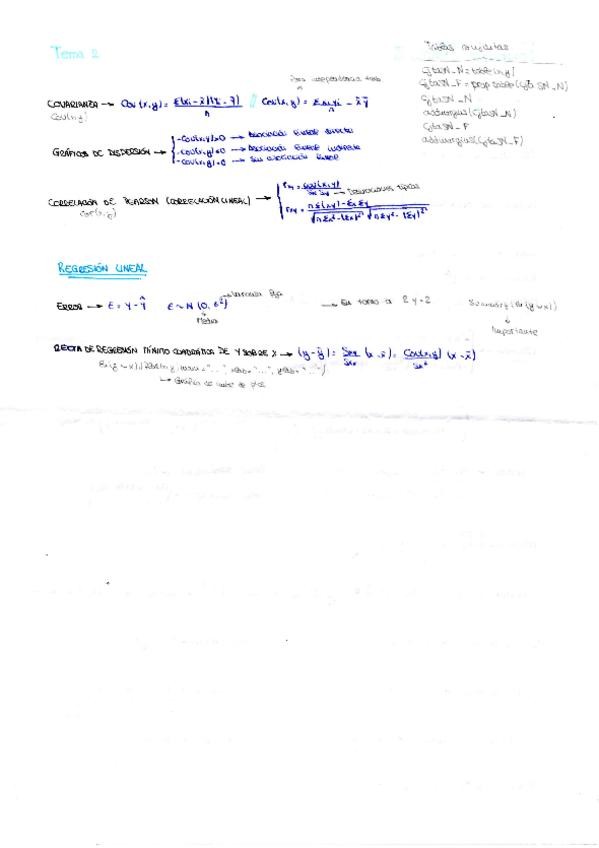 Tema 2
Tablas cruzadas
GtaSN_N = table(x,y)
GtaSN_F = prop.table(GtaSN_N)
GtaSN_N
addmargins(GtaSN_N)
GtaSN_F
addmargins(GtaSN_F)
COVARIANZA → Cov(x,y) = Σ(xi - x̄)(yi - ȳ) / n // Cov(x,y) = Σxiyi / n - x̄ȳ
Cov(x,y)
GRÁFICOS DE DISPERSIÓN →
- Cov(x,y)>0 → Asociación lineal directa
- Cov(x,y)<0 → Asociación lineal inversa
- Cov(x,y)=0 → Sin asociación lineal
CORRELACIÓN DE PEARSON (CORRELACIÓN LINEAL) →
cor(x,y)
rxy = Cov(x,y) / Sx Sy → Desviaciones típicas
rxy = nΣ(xy) - Σx Σy / √nΣx² - (Σx)² √nΣy² - (Σy)²
REGRESIÓN LINEAL
ERROR → E = Y - Ŷ E ~ N (0, σ²) → Varianza fija
Media
→ En torno a
Summary(lm(y~x))
Importante
RECTA DE REGRESIÓN MÍNIMO CUADRÁTICA DE Y SOBRE X → (y - ȳ) = Sxy / Sx² (x - x̄) = Cov(x,y) / Sx² (x - x̄)
→ Gráfico de nube de